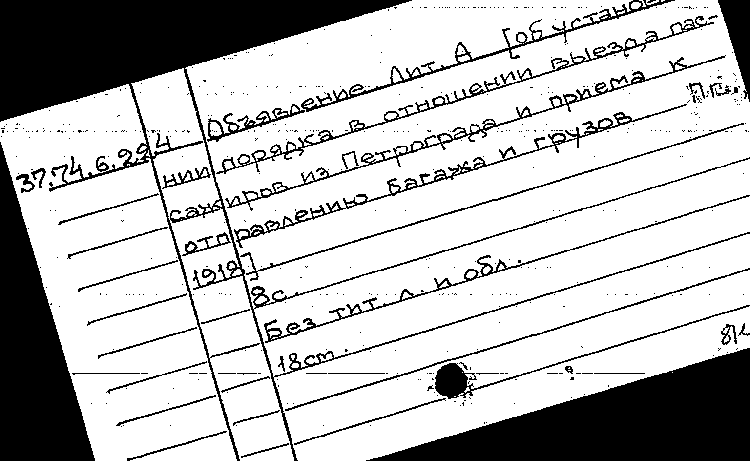 37.74.6.294
Объявление Лит. А [об установле-
нии порядка в отношении выезда пас-
сажиров из Петрограда и приема к
отправлению багажа и грузов
1918].
8с.
Без тит. л. и обл.
18cm.